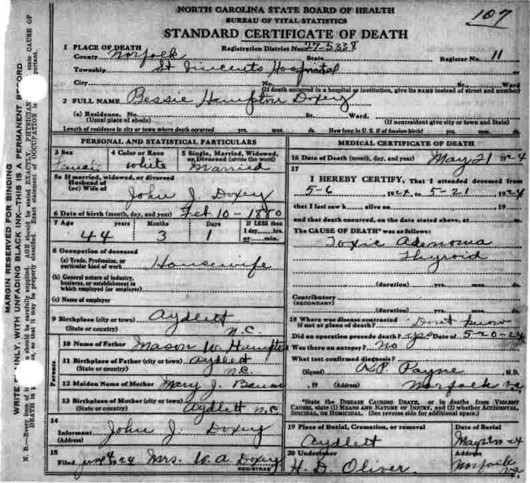 107
NORTH CAROLINA STATE BOARD OF HEALTH
BUREAU OF VITAL STATISTICS
STANDARD CERTIFICATE OF DEATH
1 PLACE OF DEATH Registration District No. 27-5338
County Norfock State Register No. 11
Township St Vincents Hospital
City No. St. Ward.
(If death occurred in a hospital or institution, give its NAME instead of street and number)
2 FULL NAME Bessie Hampton Doxey
(a) Residence. No. St. Ward.
(Usual place of abode) (If nonresident give city or town and State)
Length of residence in city or town where death occurred yrs. mos. ds. How long in U. S. if of foreign birth? yrs. mos. ds.
PERSONAL AND STATISTICAL PARTICULARS
3 Sex 4 Color or Race 5 Single, Married, Widowed, or Divorced (write the word)
white Married
5a If married, widowed, or divorced
Husband of
(or) Wife of John J. Doxey
6 Date of birth (month, day, and year) Feb 10-1880
7 Age Years Months Days If LESS than 1 day, hrs. or min.
44 3 1
8 Occupation of deceased
(a) Trade, Profession, or particular kind of work Housewife
(b) General nature of industry, business, or establishment in which employed (or employer)
(c) Name of employer
9 Birthplace (city or town) Aydlett
(State or country) N.C.
Parents
10 Name of Father Mason W. Hampton
11 Birthplace of Father (city or town) Aydlett
(State or country) N.C.
12 Maiden Name of Mother Mary J. Baum
13 Birthplace of Mother (city or town)
(State or country) Aydlett N.C.
14
Informant John J. Doxey
(Address)
15
Filed June 4 24 Mrs. W. A. Doxey
REGISTRAR
MEDICAL CERTIFICATE OF DEATH
16 Date of Death (month, day, and year) May 21 1924
17
I HEREBY CERTIFY, That I attended deceased from
5-6 1924, to 5-21, 1924
that I last saw h alive on
and that death occurred, on the date stated above, at m.
The CAUSE OF DEATH* was as follows:
Toxic Adenoma
Thyroid
(duration) yrs. mos. ds.
Contributory
(SECONDARY)
(duration) yrs. mos. ds.
18 Where was disease contracted
if not at place of death? Dont know
Did an operation precede death? yes Date of 5-20-24
Was there an autopsy? No
What test confirmed diagnosis?
(Signed) R.P. Payne M.D.
, 19 (Address) Norfock Va.
*State the DISEASE CAUSING DEATH, or in deaths from VIOLENT CAUSES, state (1) MEANS AND NATURE OF INJURY, and (2) whether ACCIDENTAL, SUICIDAL, or HOMICIDAL. (See reverse side for additional space.)
19 Place of Burial, Cremation, or removal Date of Burial
Aydlett May 23 1924
20 Undertaker Address
H. D. Oliver. Norfock Va.
MARGIN RESERVED FOR BINDING
WRITE PLAINLY, WITH UNFADING BLACK INK—THIS IS A PERMANENT RECORD